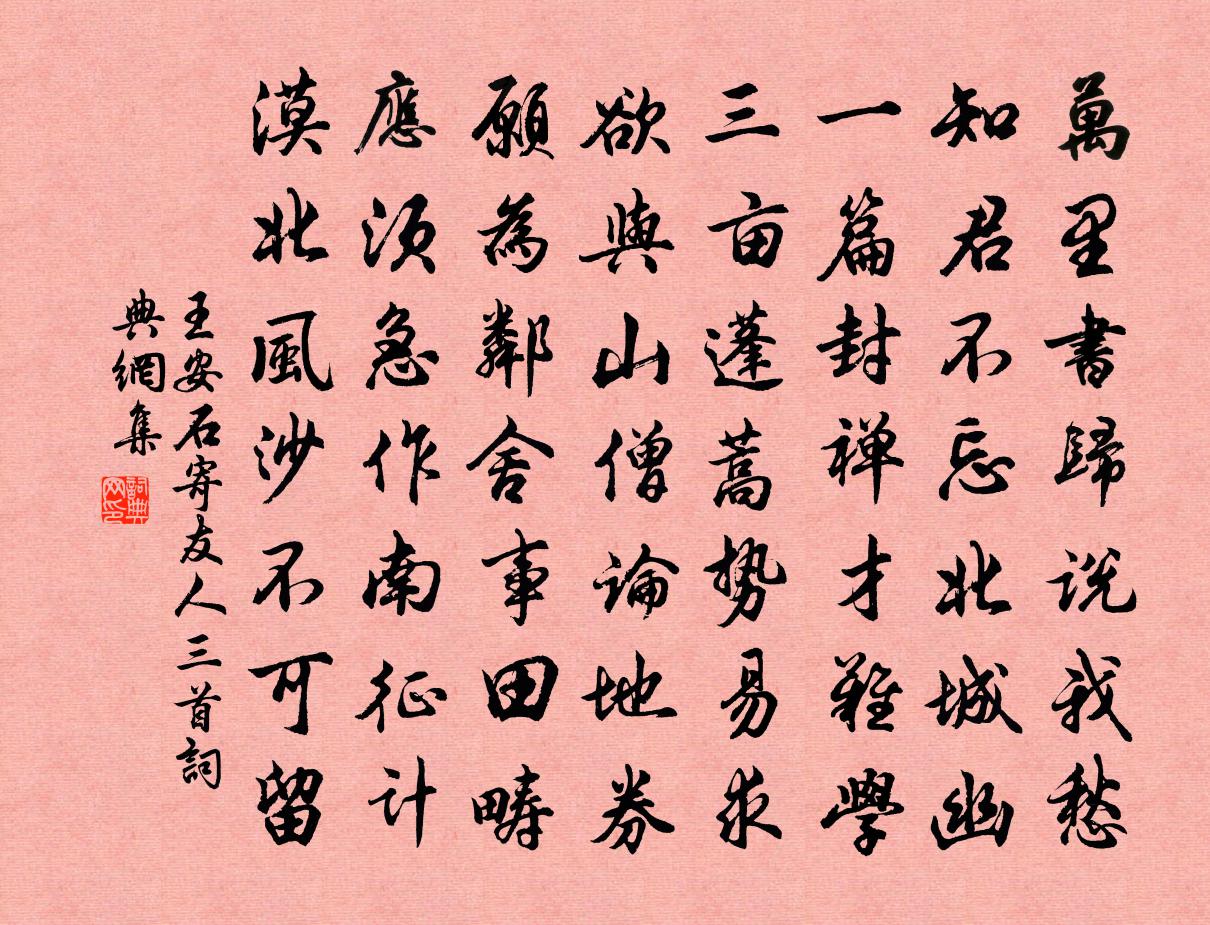 萬里書歸说我愁
知君不忘北城幽
一篇封禅才難學
三亩蓬蒿势易求
欲與山僧論地券
願為鄰舍事田疇
應须急作南征计
漠北風沙不可留
王安石寄友人三首詞
典網集
詞典网印